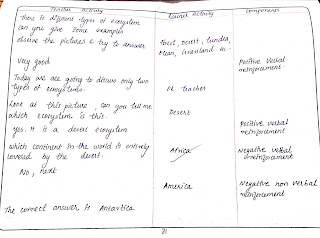 Teacher activity Learner Activity Components
There is different types of ecosystem
can you give some examples
observe the pictures & try to answer
Forest, Desert, Tundra,
Ocean, Grassland etc..
Very good
Positive Verbal
reinforcement
Today we are going to discuss only two
types of ecosystems.
Ok Teacher
Look at this picture, can you tell me
which ecosystem is this.
Desert
Yes. It is a desert ecosystem
Positive verbal
reinforcement
which continent in the world is entirely
covered by the desert.
Africa
Negative verbal
reinforcement
No, next
America
Negative non verbal
reinforcement
The correct answer is Antartica
21